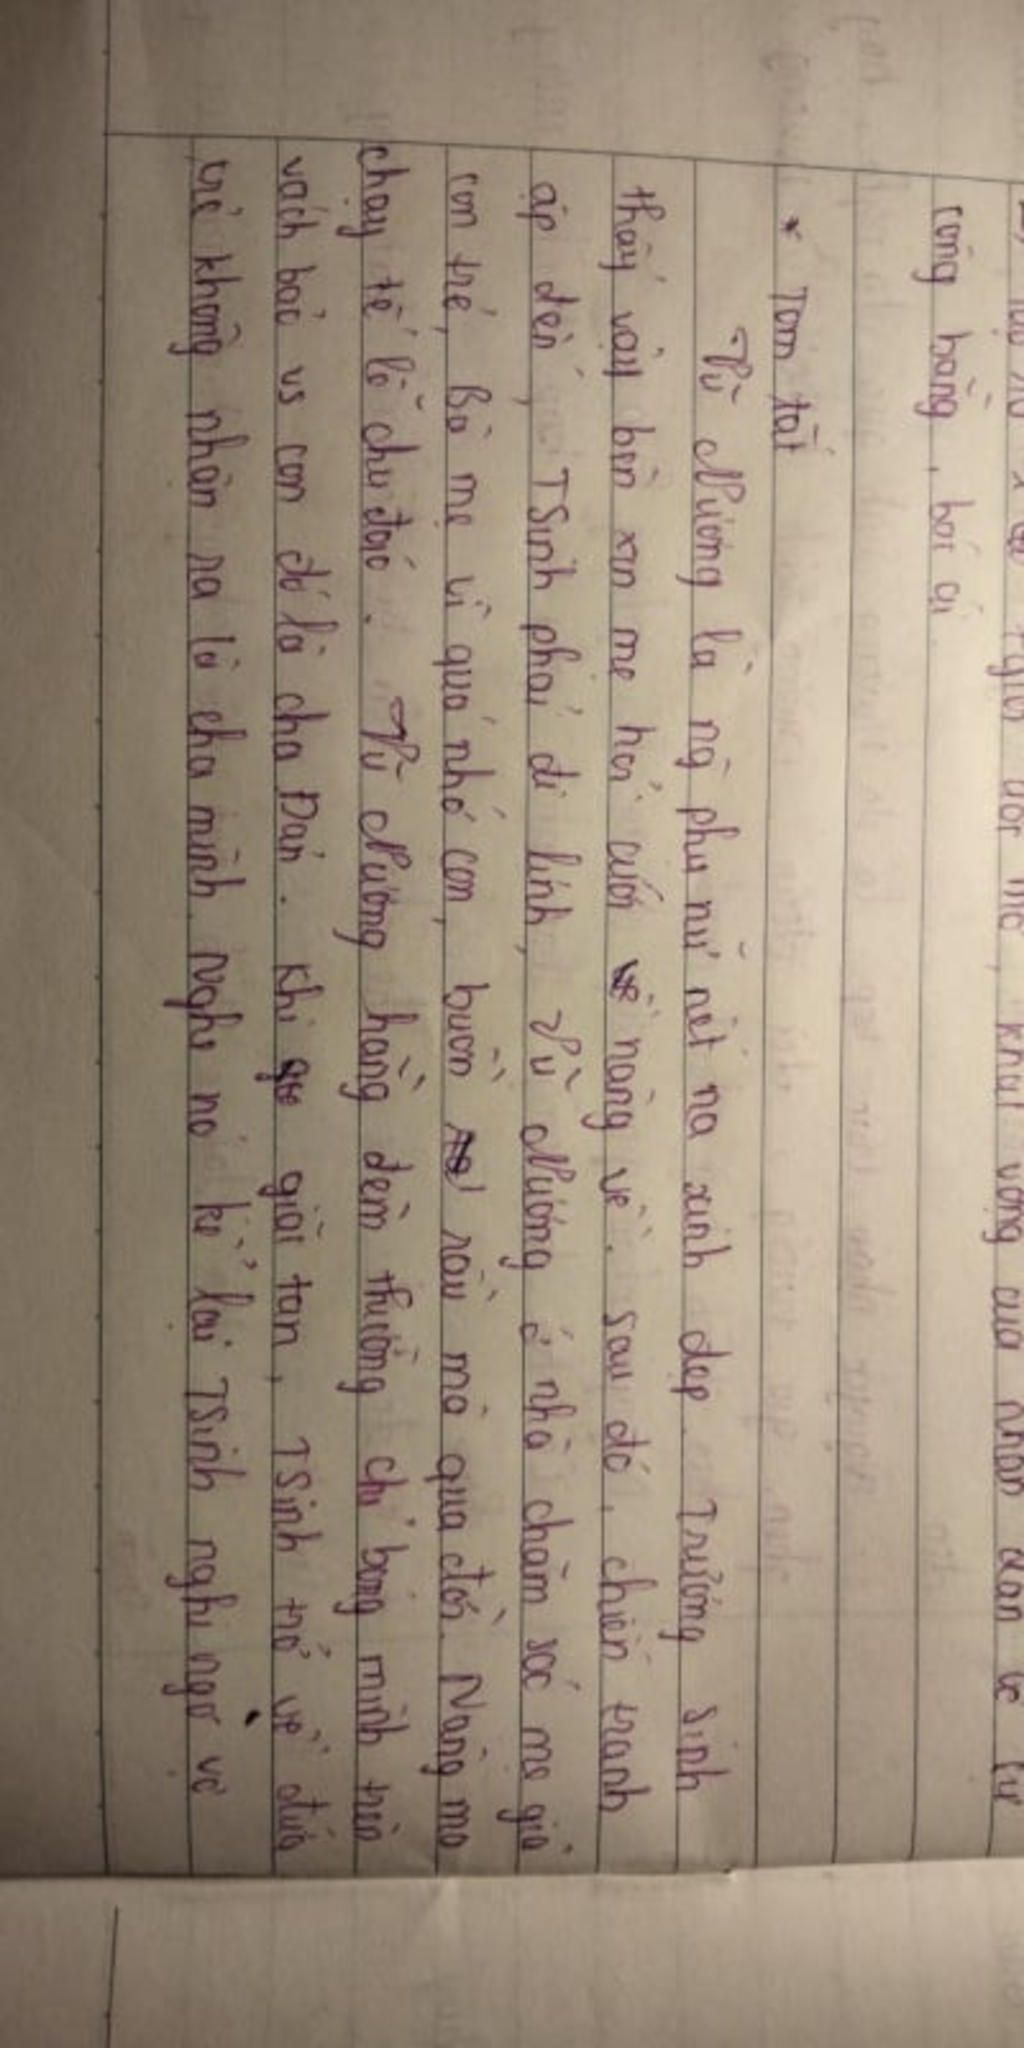 công bằng, bác ái
* Tóm tắt
Vũ Nương là ng phụ nữ nết na xinh đẹp. Trương Sinh
thấy vậy bèn xin mẹ hỏi cưới nàng về. Sau đó, chiến tranh
ập đến, TSinh phải đi lính, Vũ Nương ở nhà chăm sóc mẹ già
con trẻ, Bà mẹ vì quá nhớ con, buồn rầu mà qua đời. Nàng ma
chay tế lễ chu đáo. Vũ Nương hằng đêm thường chỉ bóng mình trên
vách bảo vs con đó là cha Đản. Khi giặc tan, TSinh trở về đứa
trẻ không nhận ra là cha mình. Nghe nó kể lại TSinh nghi ngờ vợ